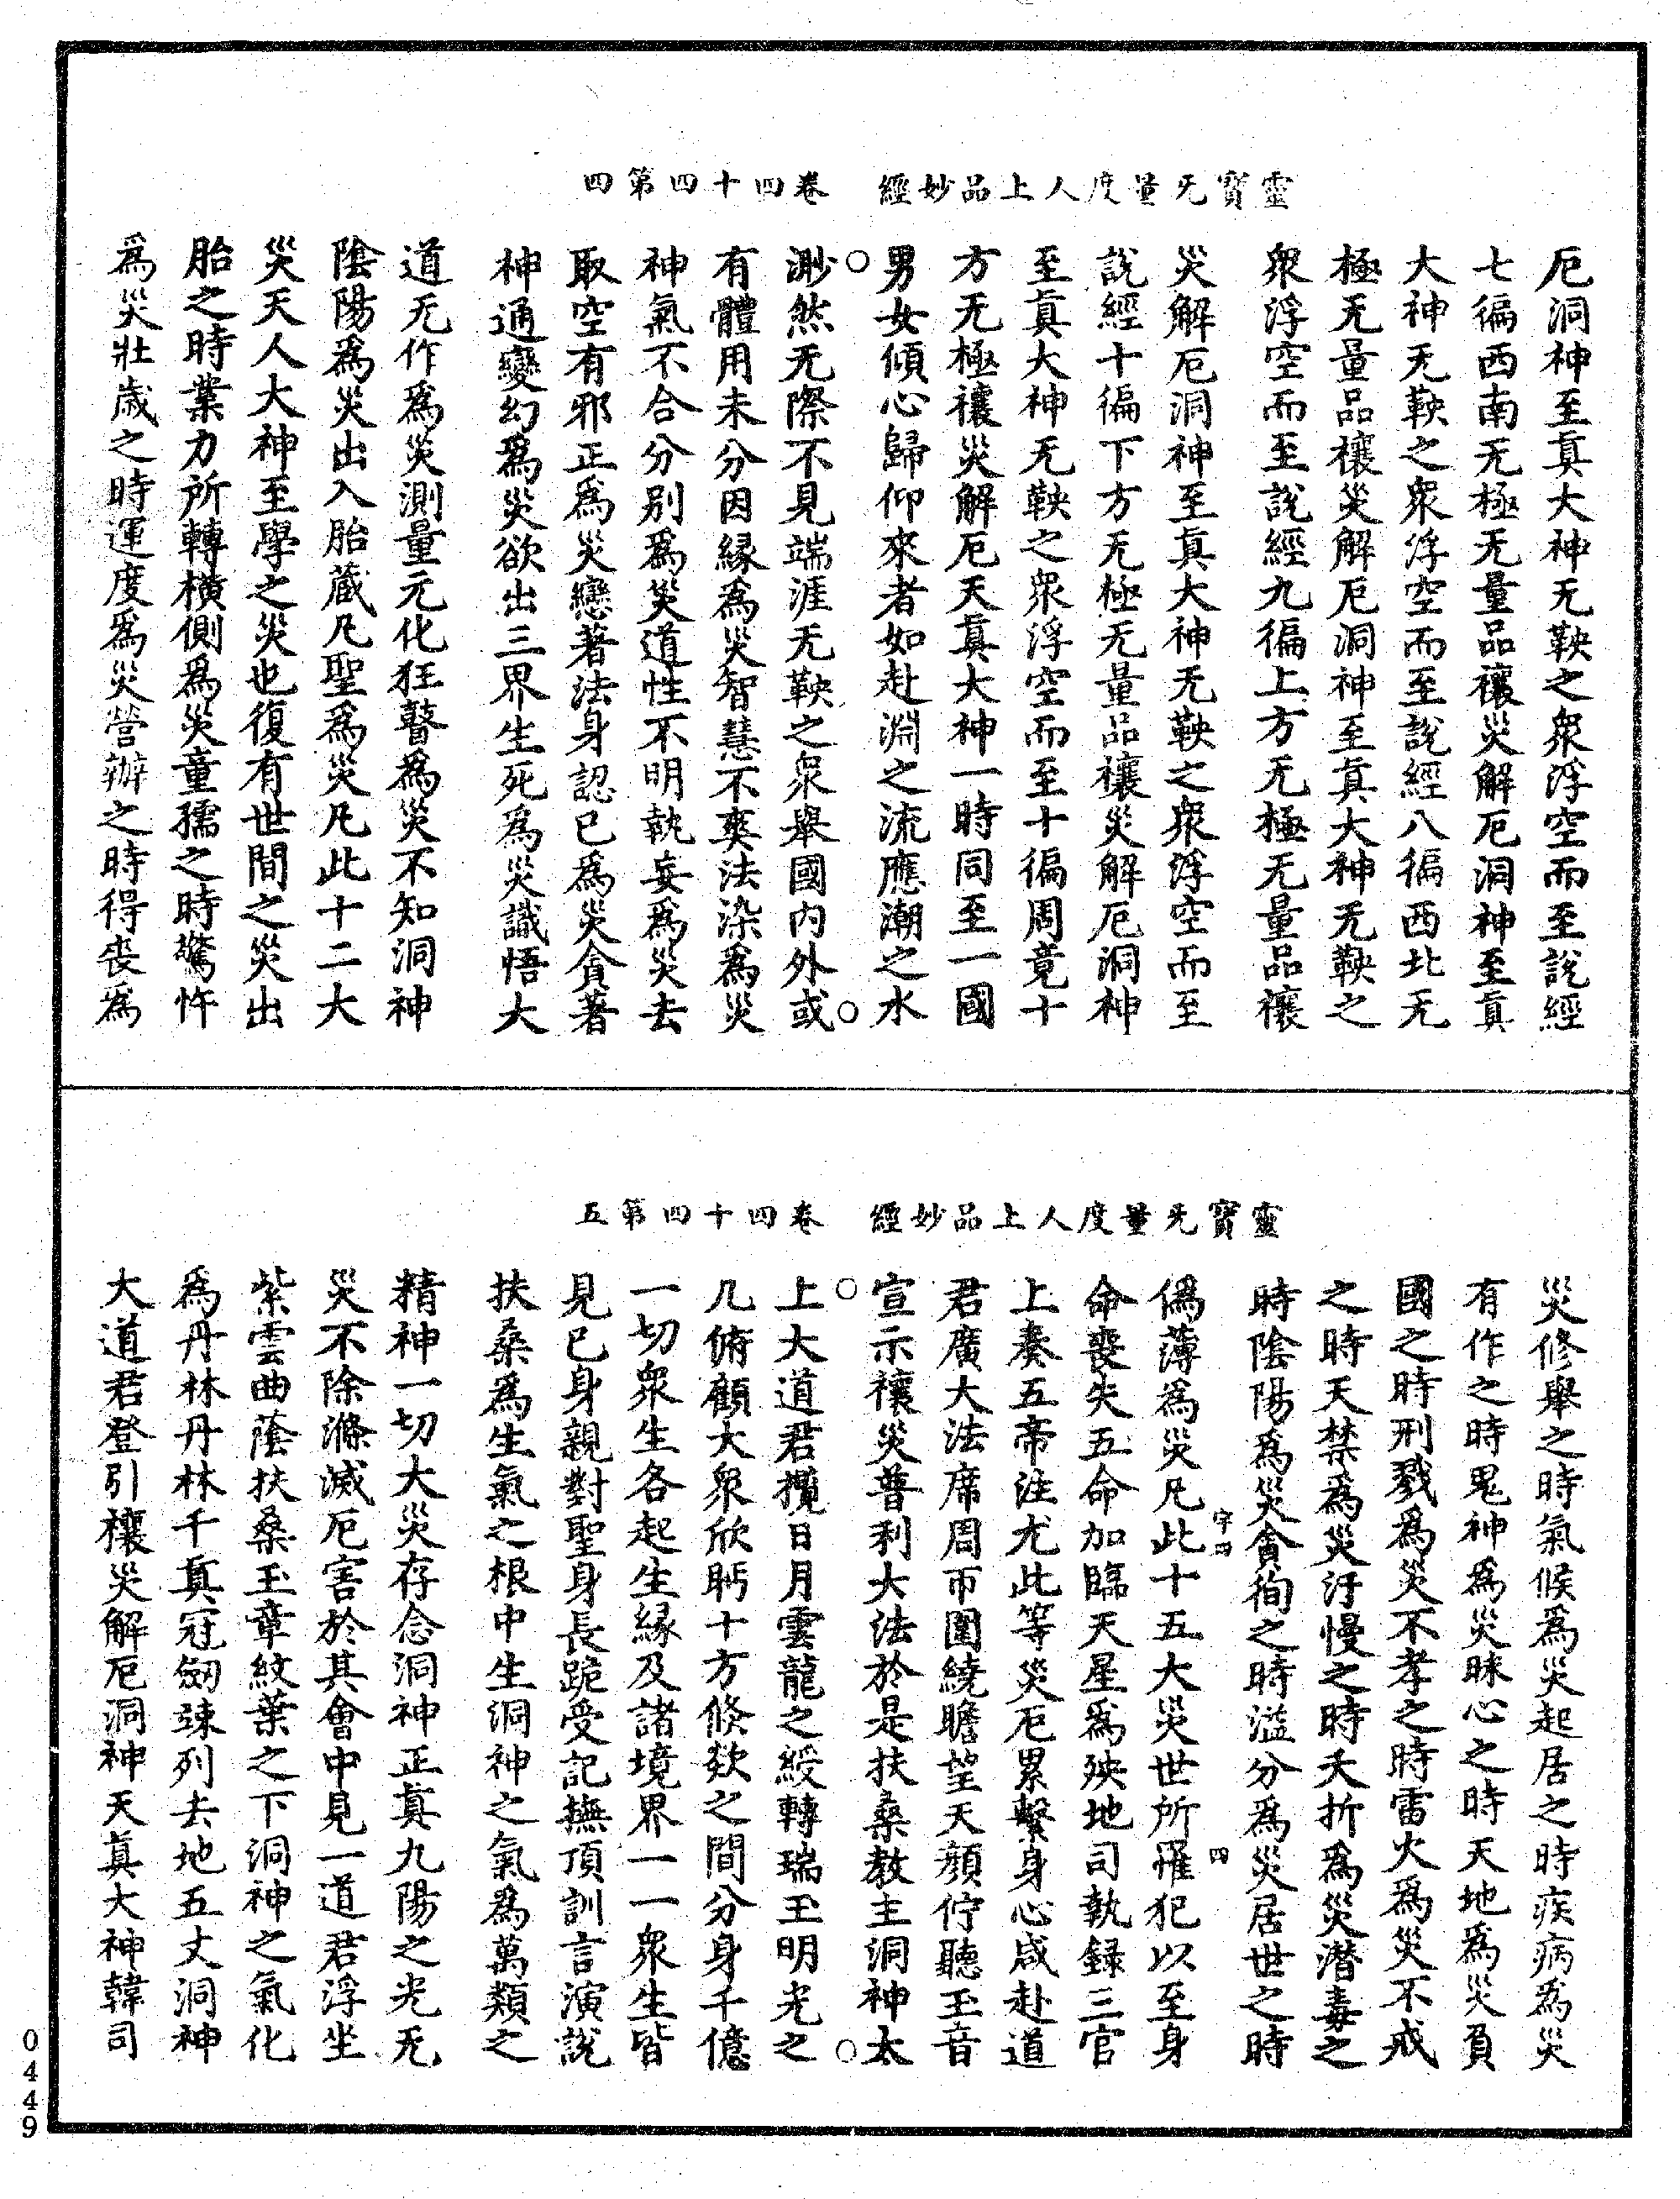 靈寶无量度人上品妙經　卷四十四第四
厄洞神至真大神无鞅之衆浮空而至說經
七徧西南无極无量品禳災解厄洞神至真
大神无鞅之衆浮空而至說經八徧西北无
極无量品禳災解厄洞神至真大神无鞅之
衆浮空而至說經九徧上方无極无量品禳
災解厄洞神至真大神无鞅之衆浮空而至
說經十徧下方无極无量品禳災解厄洞神
至真大神无鞅之衆浮空而至十徧周竟十
方无極禳災解厄天真大神一時同至一國
男女傾心歸仰來者如赴淵之流應潮之水
渺然无際不見端涯无鞅之衆舉國內外或
有體用未分因緣爲災智慧不爽法染爲災
神氣不合分别爲災道性不明執妄爲災去
取空有邪正爲災戀著法身認已爲災貪著
神通變幻爲災欲出三界生死爲災識悟大
道无作爲災測量元化狂瞽爲災不知洞神
陰陽爲災出入胎藏凡聖爲災凡此十二大
災天人大神至學之災也復有世間之災出
胎之時業力所轉橫側爲災童孺之時驚忤
爲災壯歲之時運度爲災營辦之時得喪爲
靈寶无量度人上品妙經　卷四十四第五
災修舉之時氣候爲災起居之時疾病爲災
有作之時鬼神爲災昧心之時天地爲災負
國之時刑戮爲災不孝之時雷火爲災不戒
之時天禁爲災汙慢之時夭折爲災潜毒之
時陰陽爲災貪徇之時溢分爲災居世之時
字四　四
僞薄爲災凡此十五大災世所罹犯以至身
命喪失五命加臨天星爲殃地司執録三官
上奏五帝注尤此等災厄累繫身心咸赴道
君廣大法席周帀圍繞瞻望天顏佇聽玉音
宣示禳災普利大法於是扶桑教主洞神太
上大道君攬日月雲龍之綬轉瑞玉明光之
几俯顧大衆欣眄十方倏欻之間分身千億
一切衆生各起生緣及諸境界一一衆生皆
見已身親對聖身長跪受記撫頂訓言演說
扶桑爲生氣之根中生洞神之氣爲萬類之
精神一切大災存念洞神正真九陽之光无
災不除滌滅厄害於其會中見一道君浮坐
紫雲曲蔭扶桑玉章紋葉之下洞神之氣化
爲丹林丹林千真冠劒竦列去地五丈洞神
大道君登引禳災解厄洞神天真大神韓司
0449